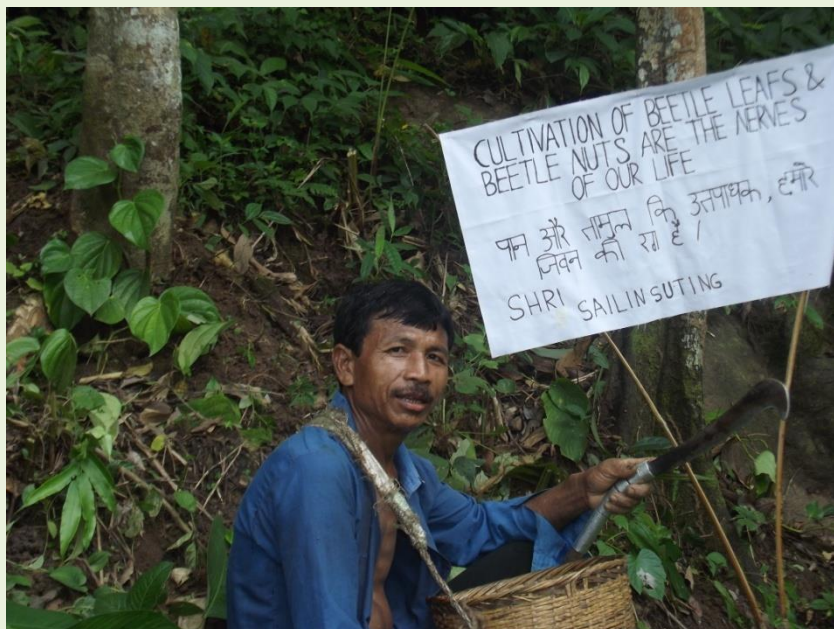 CULTIVATION OF BEETLE LEAFS &
BEETLE NUTS ARE THE NERVES
OF OUR LIFE
पान और तामुल कि उतपाधक, हमारे
जिवन की रग है।
SHRI SAILINSUTING